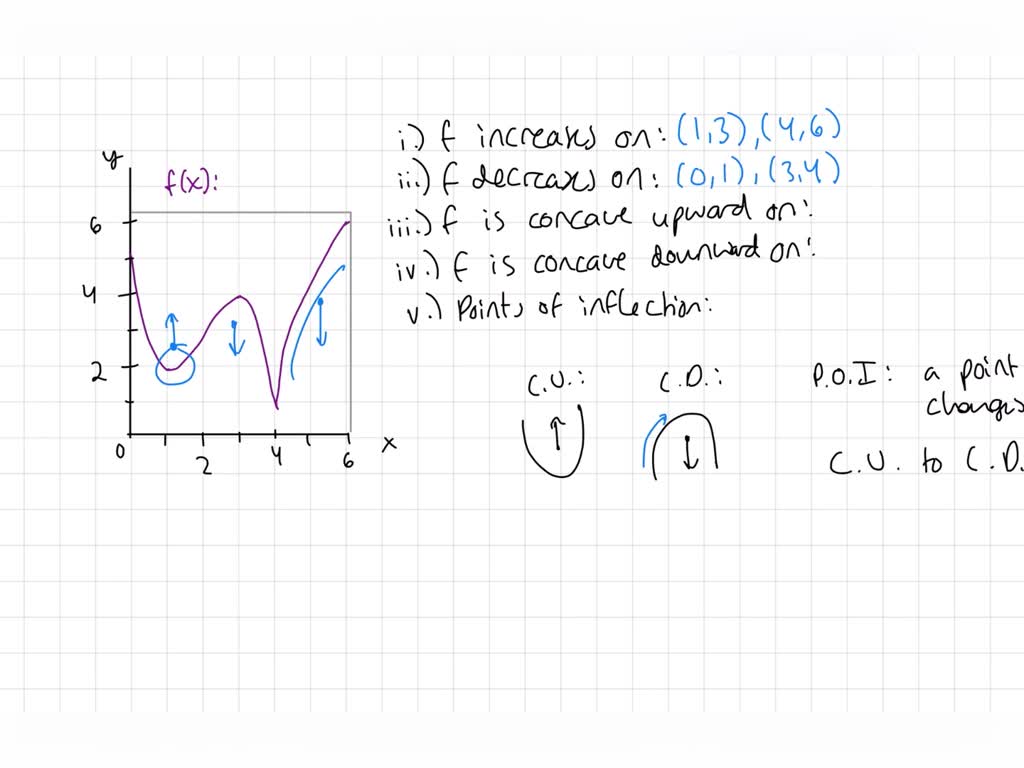 i.) f increases on: (1,3),(4,6)
ii.) f decreases on: (0,1),(3,4)
iii.) f is concave upward on:
iv.) f is concave downward on:
v.) Points of inflection:
y
f(x):
6
4
2
0
2
4
6
x
C.U.:
C.D.:
P.O.I: a point
changes
C.U. to C.D.